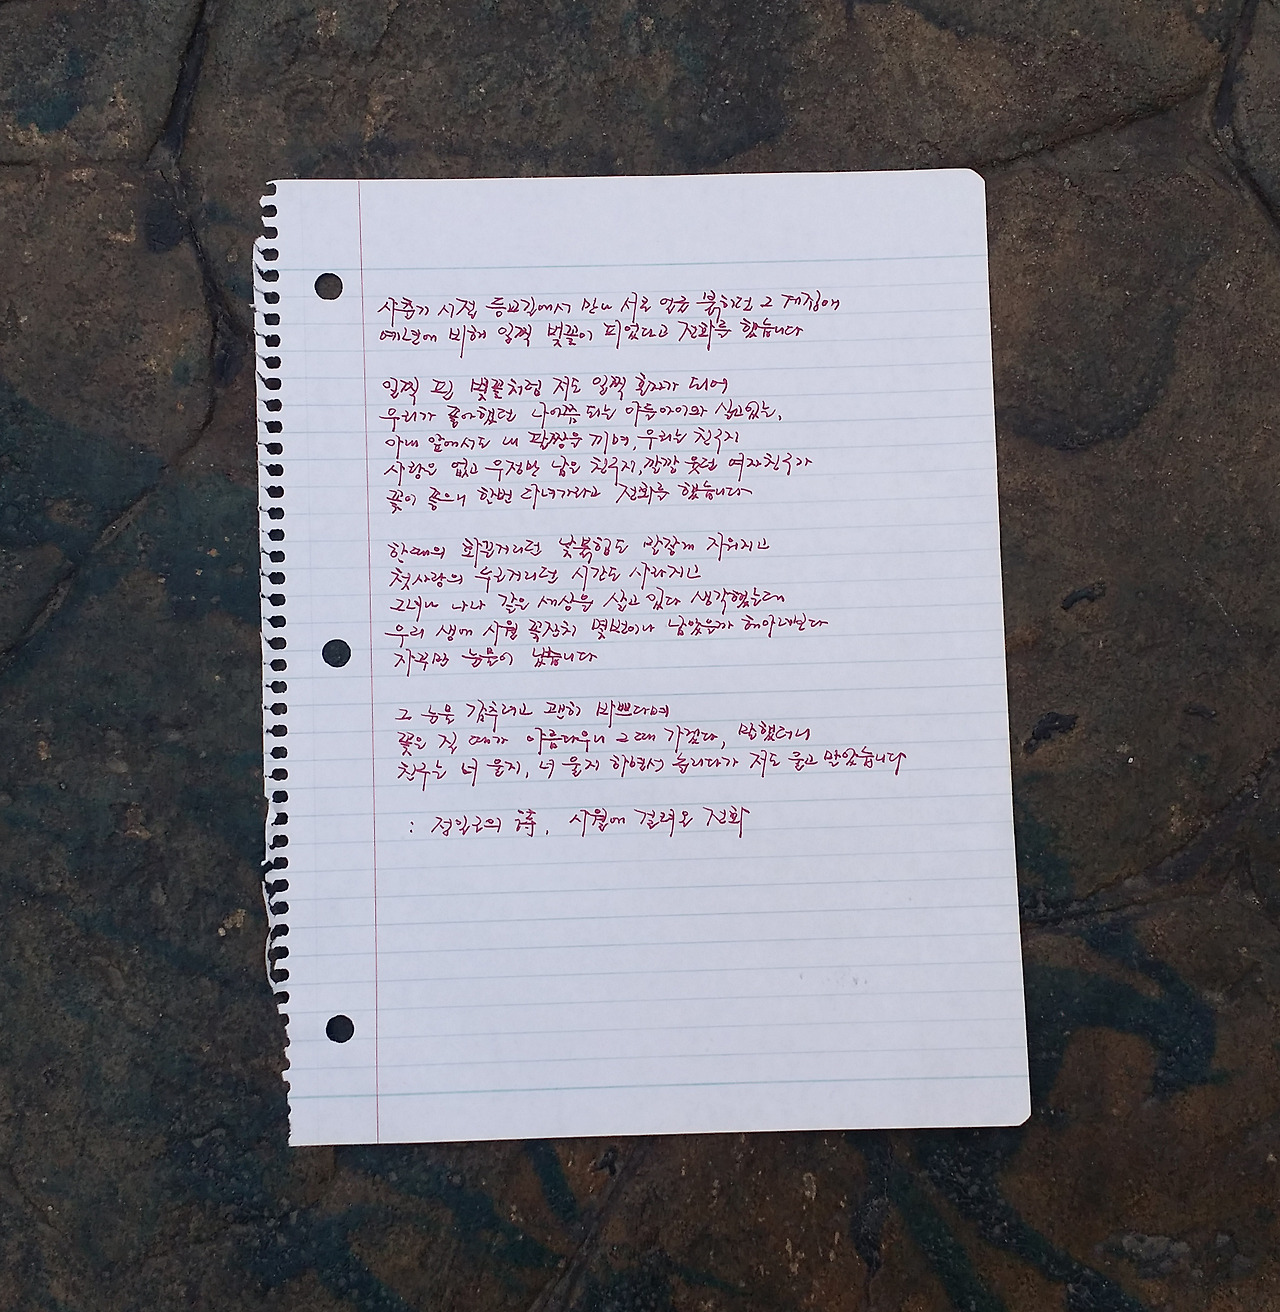 사춘기 시절 등교길에서 만나 서로 얼굴 붉히던 그 계집애
예년에 비해 일찍 벚꽃이 피었다고 전화를 했습니다
일찍 핀 벚꽃처럼 저도 일찍 혼자가 되어
우리가 좋아했던 나이쯤 되는 아들아이와 살고 있는,
아내 앞에서도 내 팔짱을 끼며, 우리는 친구지
사랑은 없고 우정만 남은 친구지, 깔깔 웃던 여자친구가
꽃이 좋으니 한번 다녀가라고 전화를 했습니다
한때의 화끈거리던 낯붉힘도 말갛게 지워지고
첫사랑의 두근거리던 시간도 사라지고
그녀나 나나 같은 세상을 살고 있다 생각했는데
우리 생에 사월 꽃잔치 몇번이나 남았을까 헤아려보다
자꾸만 눈물이 났습니다
그 눈물 감추려고 괜히 바쁘다며
꽃은 질 때가 아름다우니 그때 가겠다, 말했더니
친구는 너 울지, 너 울지 하면서 놀리다가 저도 울고 말았습니다
: 정일근의 詩, 사월에 걸려온 전화